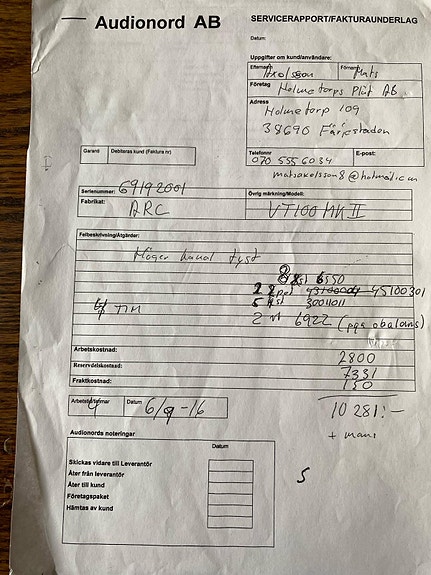 Audionord AB
SERVICERAPPORT/FAKTURAUNDERLAG
Datum:
Uppgifter om kund/användare:
Efternamn Axelsson Förnamn Mats
Företag Holmetorps Plåt AB
Adress
Holmetorp 109
38690 Färjestaden
Garanti Debiteras kund (Faktura nr)
Telefonnr E-post:
070 555 6034
matsaxelsson8@hotmail.com
Serienummer: 69192001 Övrig märkning/Modell:
Fabrikat:
ARC VT100 MK II
Felbeskrivning/Åtgärder:
Höger kanal tyst
8 st 6550
2 45100301
5 st 30011011
TIM 2 st 6922 (pga obalans)
Arbetskostnad: 2800
Reservdelskostnad: 7331
Fraktkostnad: 150
Arbetstimmar 4 Datum 6/9-16
10 281:-
+ moms
Audionords noteringar
Datum
Skickas vidare till Leverantör
Åter från leverantör
Åter till kund
Företagspaket
Hämtas av kund
S